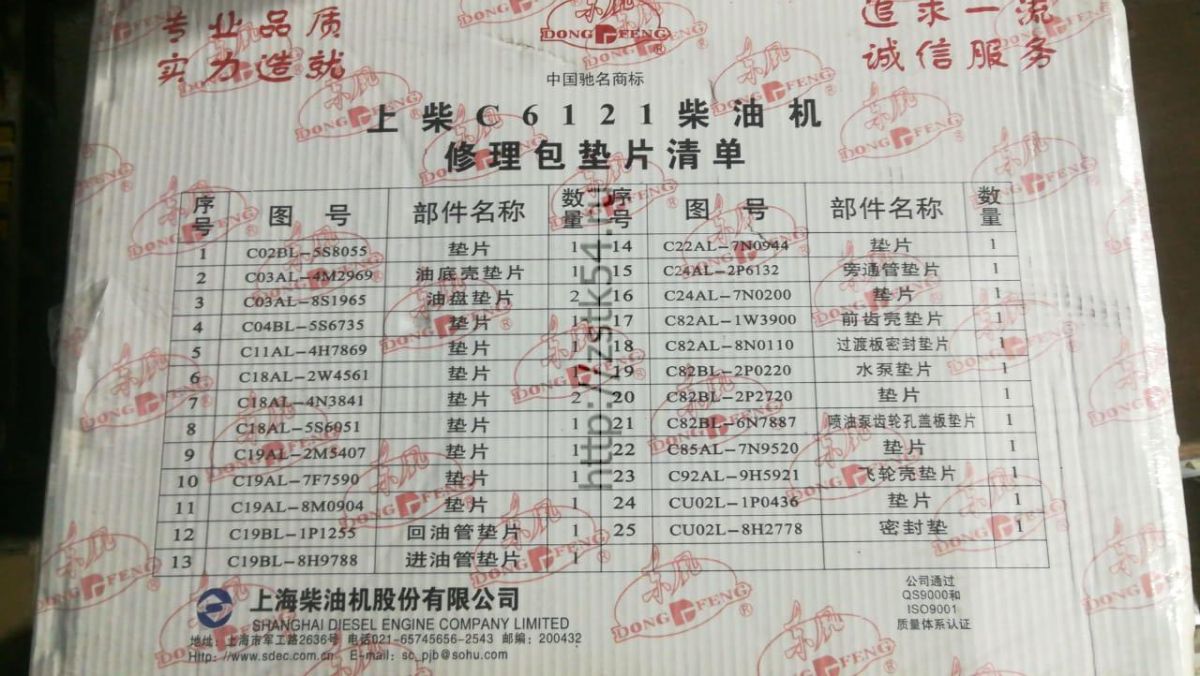 专业品质
实力造就
东风
DONG FENG®
中国驰名商标
追求一流
诚信服务
上柴C6121柴油机
修理包垫片清单
序号 图号 部件名称 数量 序号 图号 部件名称 数量
1 C02BL-5S8055 垫片 1 14 C22AL-7N0944 垫片 1
2 C03AL-4M2969 油底壳垫片 1 15 C24AL-2P6132 旁通管垫片 1
3 C03AL-8S1965 油盘垫片 2 16 C24AL-7N0200 垫片 1
4 C04BL-5S6735 垫片 1 17 C82AL-1W3900 前齿壳垫片 1
5 C11AL-4H7869 垫片 1 18 C82AL-8N0110 过渡板密封垫片 1
6 C18AL-2W4561 垫片 1 19 C82BL-2P0220 水泵垫片 1
7 C18AL-4N3841 垫片 2 20 C82BL-2P2720 垫片 1
8 C18AL-5S6051 垫片 1 21 C82BL-6N7887 喷油泵齿轮孔盖板垫片 1
9 C19AL-2M5407 垫片 1 22 C85AL-7N9520 垫片 1
10 C19AL-7F7590 垫片 1 23 C92AL-9H5921 飞轮壳垫片 1
11 C19AL-8M0904 垫片 1 24 CU02L-1P0436 垫片 1
12 C19BL-1P1255 回油管垫片 1 25 CU02L-8H2778 密封垫 1
13 C19BL-8H9788 进油管垫片 1
http://zstk54.ru
上海柴油机股份有限公司
SHANGHAI DIESEL ENGINE COMPANY LIMITED
地址:上海市军工路2636号 电话021-65745656-2543 邮编:200432
Http://www.sdec.com.cn E-mail:sc_pjb@sohu.com
公司通过
QS9000和
ISO9001
质量体系认证